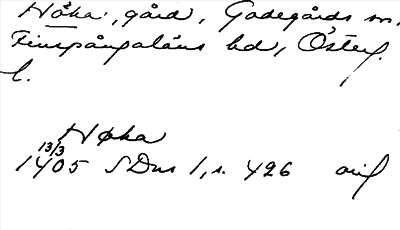 Håka, gård, Godegårds sn,
Finspångaläns hd, Österg.
l.
Høka
13/3
1405 SDns 1, s. 426 orig